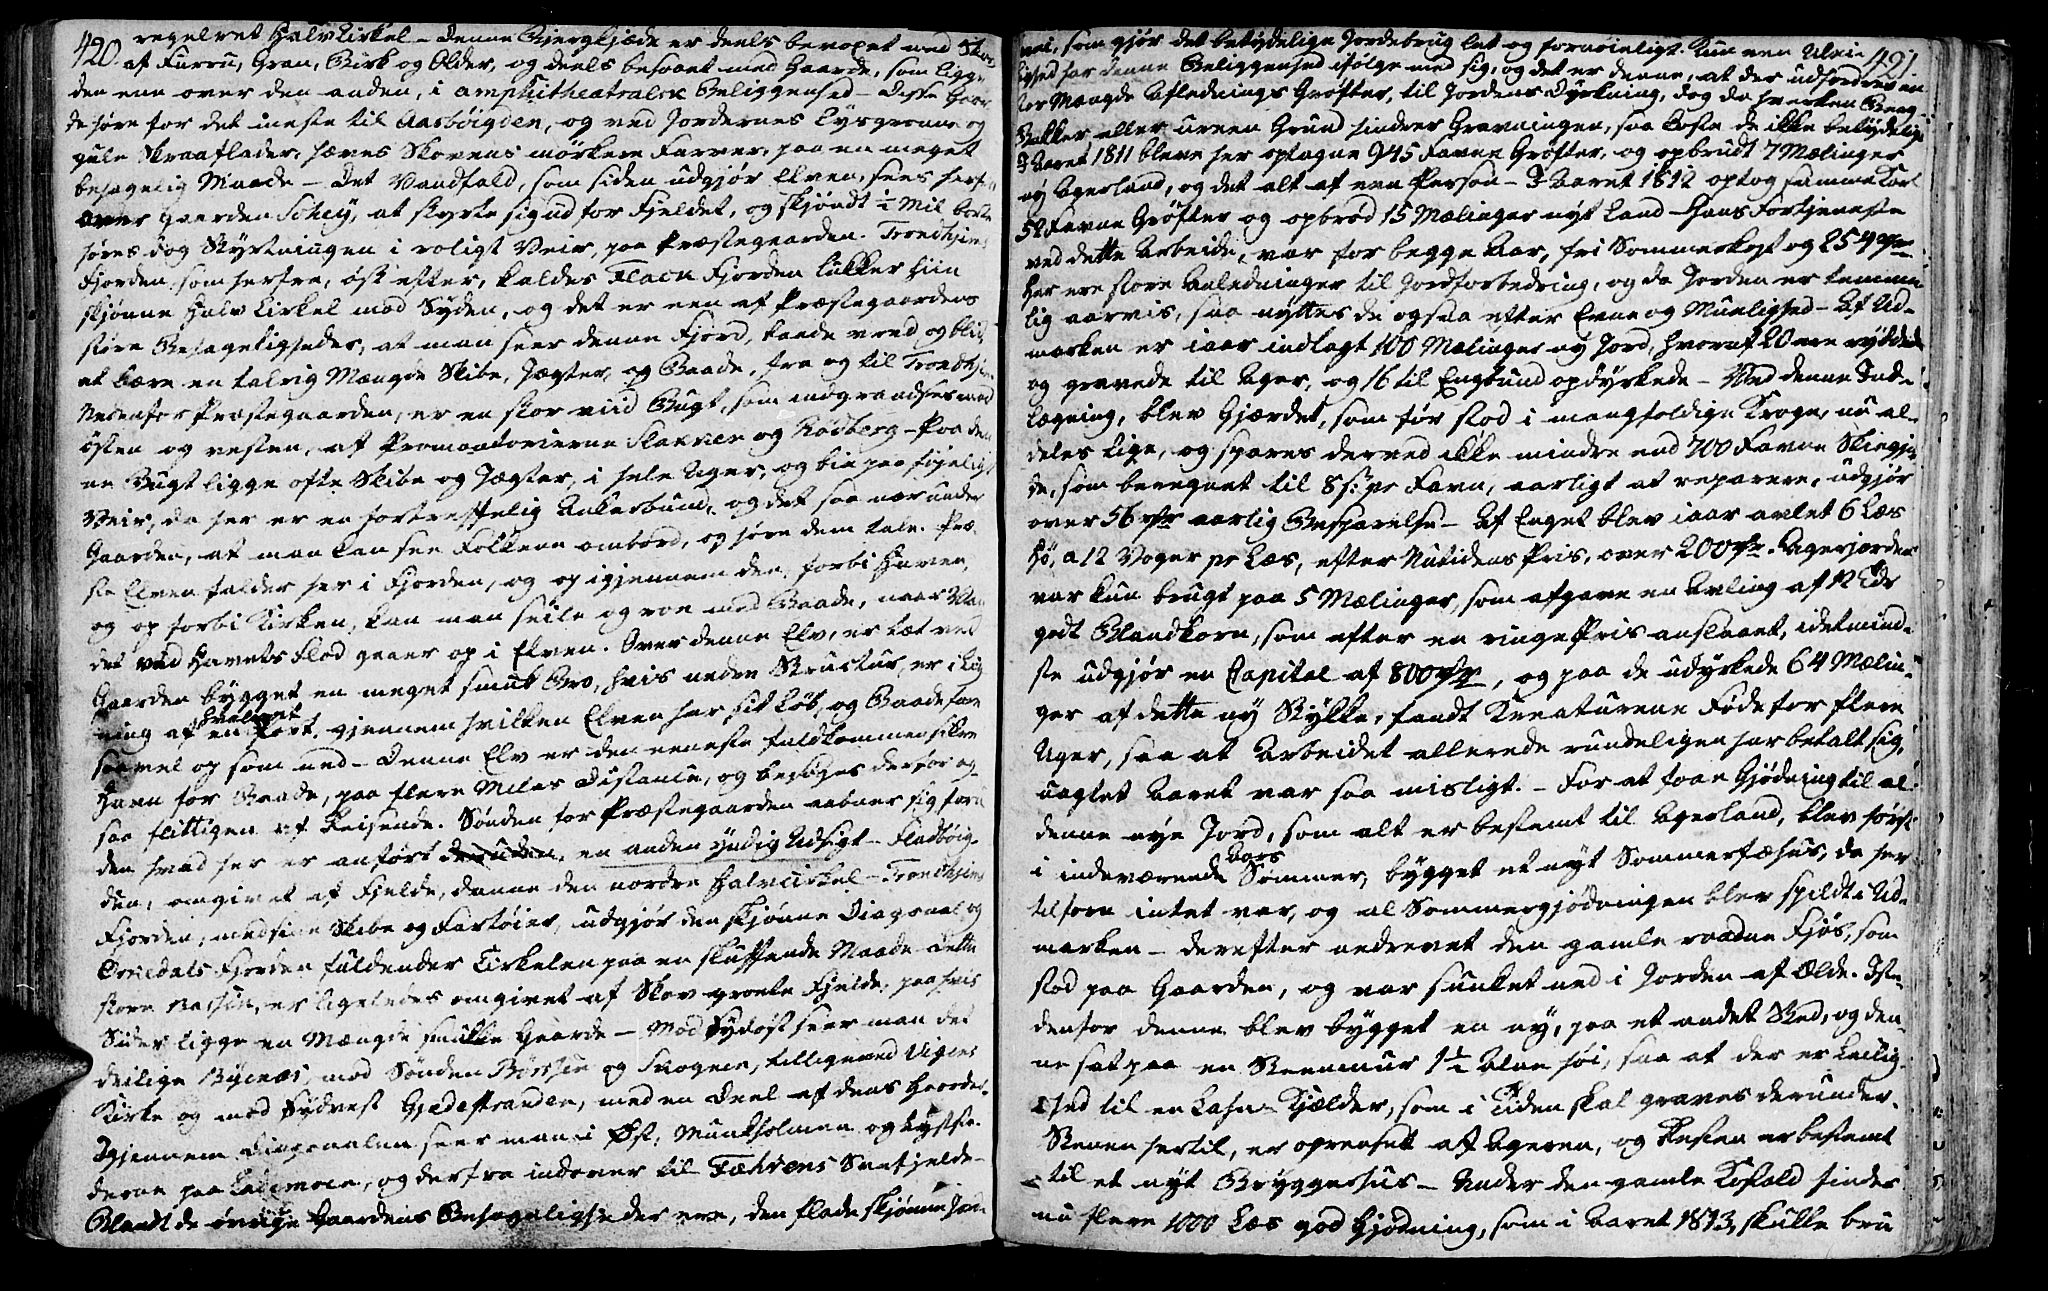 420.
regelret Halv Cirkel – Denne Bjergkjæde er deels bevoxet med Skov
af Furru, Gran, Birk og Older, og deels besaaet med Gaarde, som ligge
den ene over den anden, i amphitheatralsk Beliggenhed – Disse Gaar
de høre for det meste til Aasbøigden, og ved Jordernes lysgrønne og
gule Skraaflader, hæves Skovens mörkere Farver, paa en meget
behagelig Maade – Det Vandfald, som siden udgjør Elven, sees herfra
over gaarden Schey, at styrte sig ud for Fjeldet, og skjøndt ½ Miil borte
høres dog Styrtningen i roligt Veir, paa Præstegaarden. Trondhjems
Fjorden som herfra, øst efter, kaldes Flack Fjorden lukker hiin
skjønne Halv Cirkel mod Syden, og det er een af Præstegaardens
større Behageligheder, at man seer denne Fjord, baade vred og blid
at bære en talrig Mængde Skibe, Jægter, og Baade, fra og til Trondhjem
Nedenfor Præstegaarden, er en stor viid Bugt, som indgrændses mod
østen og vesten, af Promontorierne Slakken og Rödberg – Paa den
ne Bugt ligge ofte Skibe og Jægter, i hele Uger, og bie paa føyeligt
Veir, da her er en fortreffelig Ankerbund, og det saa nær under
Gaarden, at man kan see Folkene ombord, og høre dem tale. Præ-
ste Elven falder her i Fjorden, og op igjennem den, forbi Haven,
og op forbi Kirken, kan man seile og roe med Baade, naar Van
det ved Havets Flod gaaer op i Elven. Over denne Elv, er tæt ved
Gaarden bygget en meget smuk Bro, hvis nedre Structur, er i Lig
ning af en hvælvet Port, gjennem hvilken Elven har sit Løb, og Baade fare
saavel op som ned – Denne Elv er den eneste fuldkommen sikre
Havn for Baade, paa flere Miles Distance, og besøges derfor og-
saa flittigen af Reisende. Sönden for Præstegaarden aabner sig, foru
den hvad her er anført, en anden yndig Udsigt – Fladbøig-
den, omgivet af Fjelde, danne den nordre Halvcirkel – Trondhjems
Fjorden, med sine Skibe og Fartøier, udgjør den skjønne Diagonal og
Orkedals Fjorden fuldender Cirkelen paa en skuffende Maade – Dette
store Bassin, er ligeledes omgivet af Skov groete Fjelde, paa hvis
Sider ligge en Mængde smukke Gaarde – Mod Sydøst seer man det
deilige Byenæs, mod Sönden Børsen og Skognen, tilligemed Vigens
Kirke og mod Sydvest Gjedestranden, med en Deel af dens Gaarde.
Igjennem Diagonalen seer man i Øst, Munkholmen og Lyststæ-
derne paa Lademoen, og derfra indover til Fæhrens Snefjelde –
Blandt de øvrige Gaardens Behageligheder ere, den flade skjønne Jord
421.
vei, som gjør det betydelige Jordebrug let og fornøieligt. Kun een Ulei-
lighed har denne Beliggenhed ifølge med sig, og det er denne, at der udfordres en
stor Mængde Aflednings Grøfter, til Jordens Dyrkning, dog da hverken Berg
Bakker eller ureen Grund hindrer Gravningen, saa koste de ikke betydeligt
I Aaret 1811 bleve her optagne 945 Favne Grøfter, og opbrudt 7 Mælinger
ny Agerland, og det alt af een Person – I Aaret 1812 optog samme Karl
52 Favne Grøfter og opbrød 15 Mælinger nyt Land – Hans Fortjeneste
ved dette Arbeide, var for begge Aar, fri Sommerkost og 254 rdr
Her ere store Anledninger til Jordforbedring, og da Jorden er temme-
lig aarvis, saa nyttes de ogsaa efter Evne og Muelighed – Af Ud-
marken er iaar indtagt 100 Mælinger ny Jord, hvoraf 20 ere ryddede
og gravede til Ager, og 16 til Engbund opdyrkede – Ved denne Ind-
tagning, blev Gjærdet, som før stod i mangfoldige Kroge, nu al-
deles Lige, og spares derved ikke mindre end 700 Favne Skiegjer
de, som beregnet til 8 s: pr Favn, aarligt at reparere, udgjør
over 56 rdr aarlig Besparelse – Af Enget blev iaar avlet 6 Læs
Hø, a 12 Voger pr Læs, efter Nutidens Pris, over 200 rdr. Agerjorden
var kun brugt paa 5 Mælinger, som afgave en Avling af 12 Tdr
godt Blandkorn, som efter en ringe Pris anslaaet, idetmind-
ste udgjør en Capital af 800 rdr, og paa de udyrkede 64 Mælin-
ger af dette ny Stykke, fandt Kreaturene Føde for flere
Uger, saa at Arbeidet allerede rundeligen har betalt sig,
uagtet Aaret var saa misligt. – For at faae Gjødning til al
denne nye Jord, som alt er bestemt til Agerland, blev først
i indeværende Aars Sommer, bygget et nyt Sommerfæhus, da her
tilforn intet var, og al Sommergjødningen blev spildt i Ud-
marken – derefter nedrevet den gamle raadne Fjøs, som
stod paa Gaarden, og var sunket ned i Jorden af Ælde. Iste-
denfor denne blev bygget en ny, paa et andet Sted, og den-
ne sat paa en Steenmuur 1½ Alne høi, saa at der er Leilig-
hed til en Kjælder, som i Tiden skal graves derunder.
Stenen hertil, er oprensket af Ageren, og Resten er bestemt
til et nyt Bryggerhus – Under den gamle Kostald findes
nu flere 1000 Læs god Gjødning, som i Aaret 1813, skulle bru